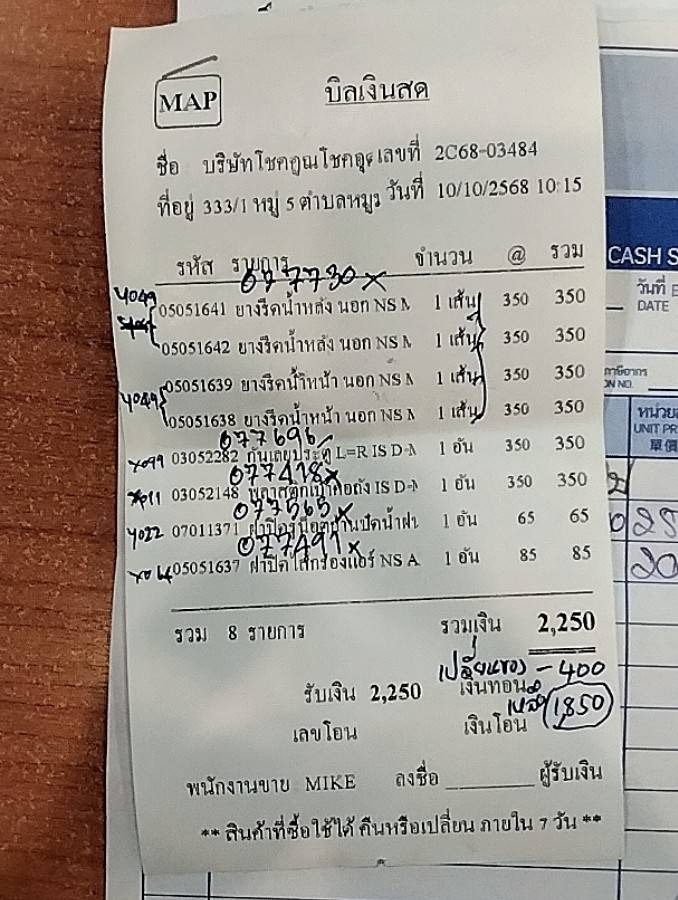 MAP
บิลเงินสด
ชื่อ บริษัทโชคคูณโชคอุ เลขที่ 2C68-03484
ที่อยู่ 333/1 หมู่ 5 ตำบลหมูร วันที่ 10/10/2568 10:15
รหัส รายการ จำนวน @ รวม
077730x
4049 05051641 ยางรีดน้ำหลัง นอก NS M 1 เส้น 350 350
05051642 ยางรีดน้ำหลัง นอก NS M 1 เส้น 350 350
05051639 ยางรีดน้ำหน้า นอก NS M 1 เส้น 350 350
4049 05051638 ยางรีดน้ำหน้า นอก NS M 1 เส้น 350 350
077696
4099 03052282 กันเลยประตู L=R IS D-M 1 อัน 350 350
077418x
03052148 1 อัน 350 350
077565x
4022 07011371 1 อัน 65 65
077491x
05051637 NS A 1 อัน 85 85
รวม 8 รายการ รวมเงิน 2,250
เปลี่ยนของ -400
รับเงิน 2,250 เงินทอน 0
เหลือ 1850
เลขโอน เงินโอน
พนักงานขาย MIKE ลงชื่อ ผู้รับเงิน
** สินค้าที่ซื้อใช้ได้ คืนหรือเปลี่ยน ภายใน 7 วัน **
CASH S
วันที่
DATE
UNIT PR
單價
025
20